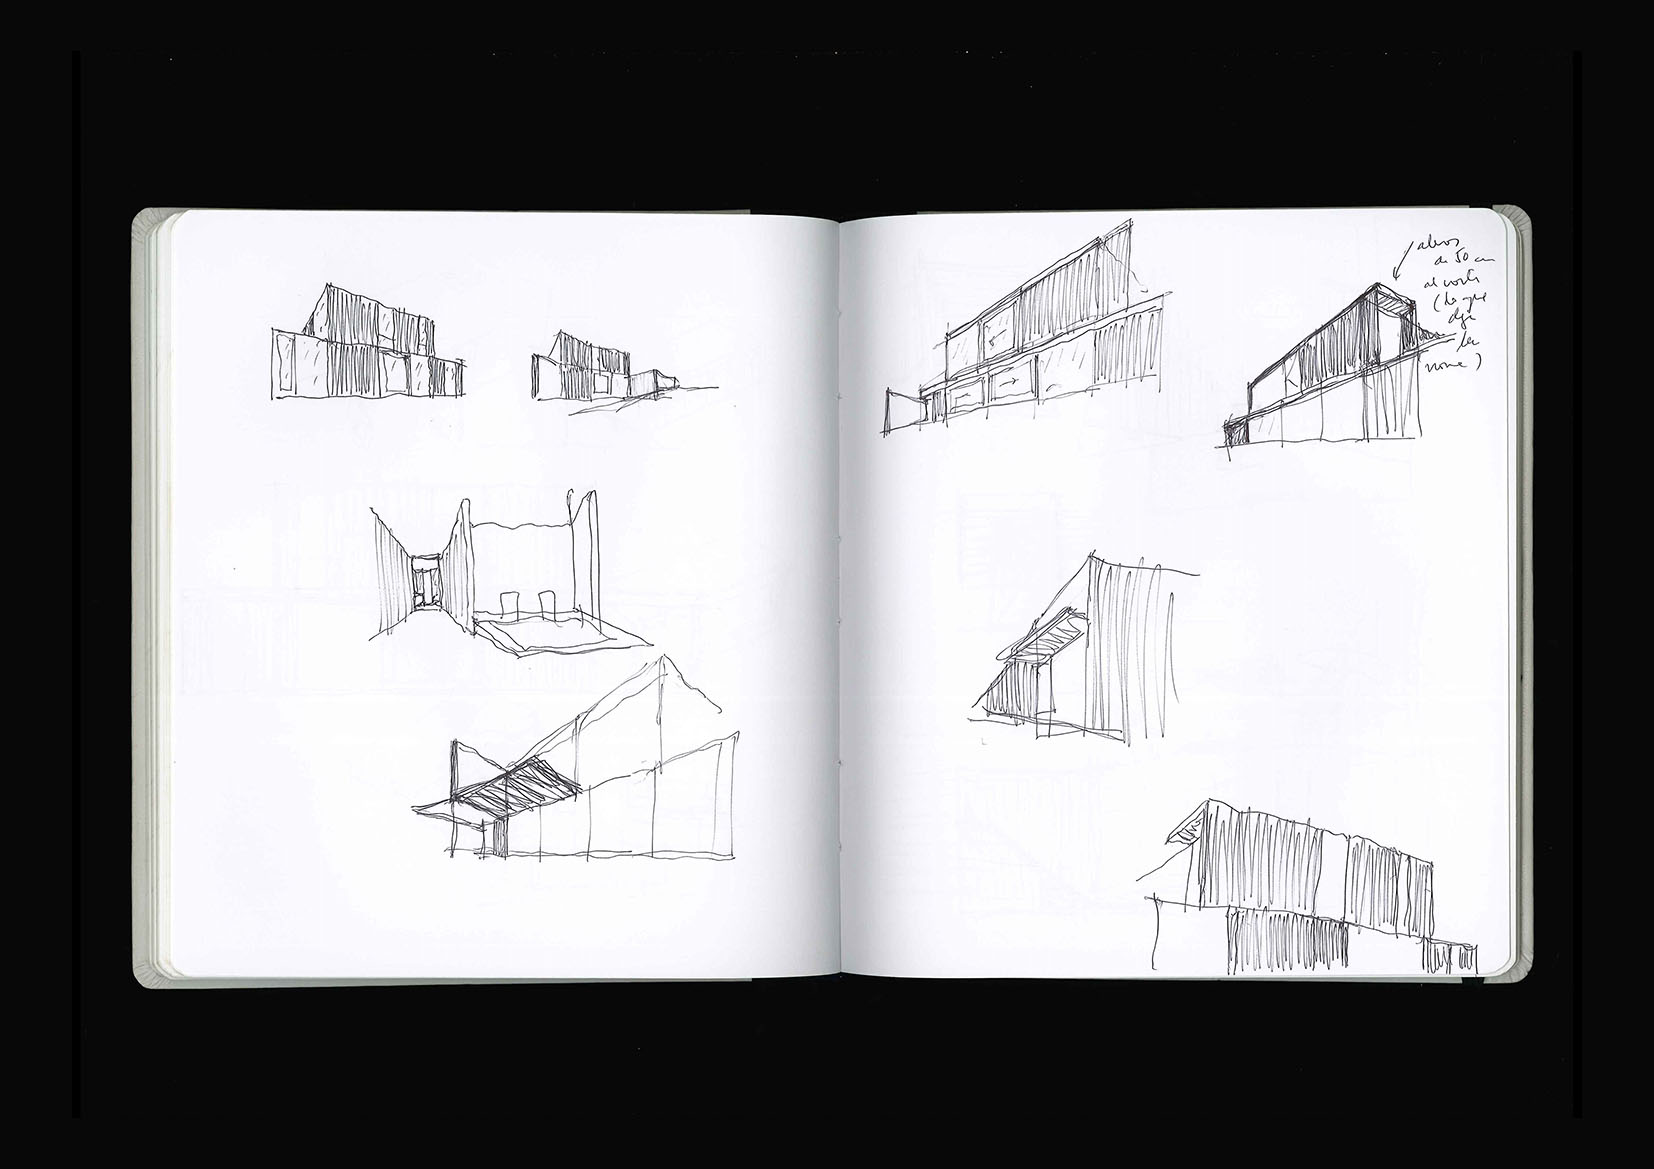 aleros
de 50 cm
al norte
(lo que
deje
la
norma)